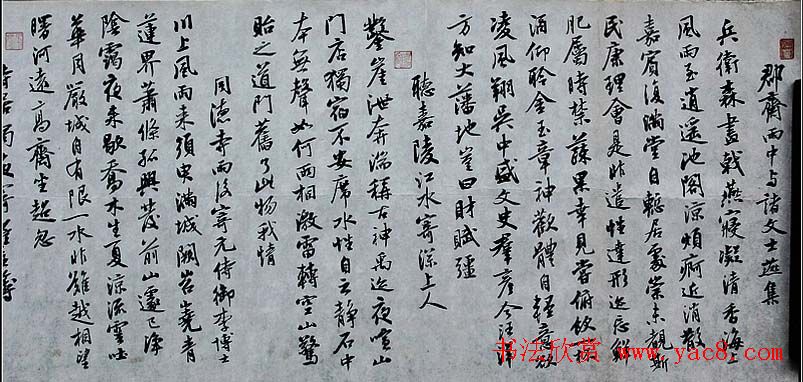 郡齋雨中与諸文士燕集
兵衛森畫戟燕寢凝清香海上
風雨至逍遥池閣涼煩痾近消散
嘉賓復滿堂自慙居處崇未觀斯
民康理會是非遣性達形迹忘鮮
肥屬時禁蔬果幸見嘗俯飲一杯
酒仰聆金玉章神歡體自輕意欲
凌風翔吳中盛文史群彦今汪洋
方知大藩地豈曰財賦疆
聽嘉陵江水寄深上人
鑿崖泄奔湍稱古神禹迹夜喧山
門店獨宿不安席水性自云静石中
本無聲如何兩相激雷轉空山驚
貽之道門舊了此物我情
同德寺雨後寄元侍御李博士
川上風雨來須臾滿城闕岧嶤青
蓮界蕭條孤興發前山遽已淨
陰靄夜來歇喬木生夏涼流雲吐
華月嚴城自有限一水非難越相望
曙河遠高齋坐超忽
书法欣赏 www.yac8.com